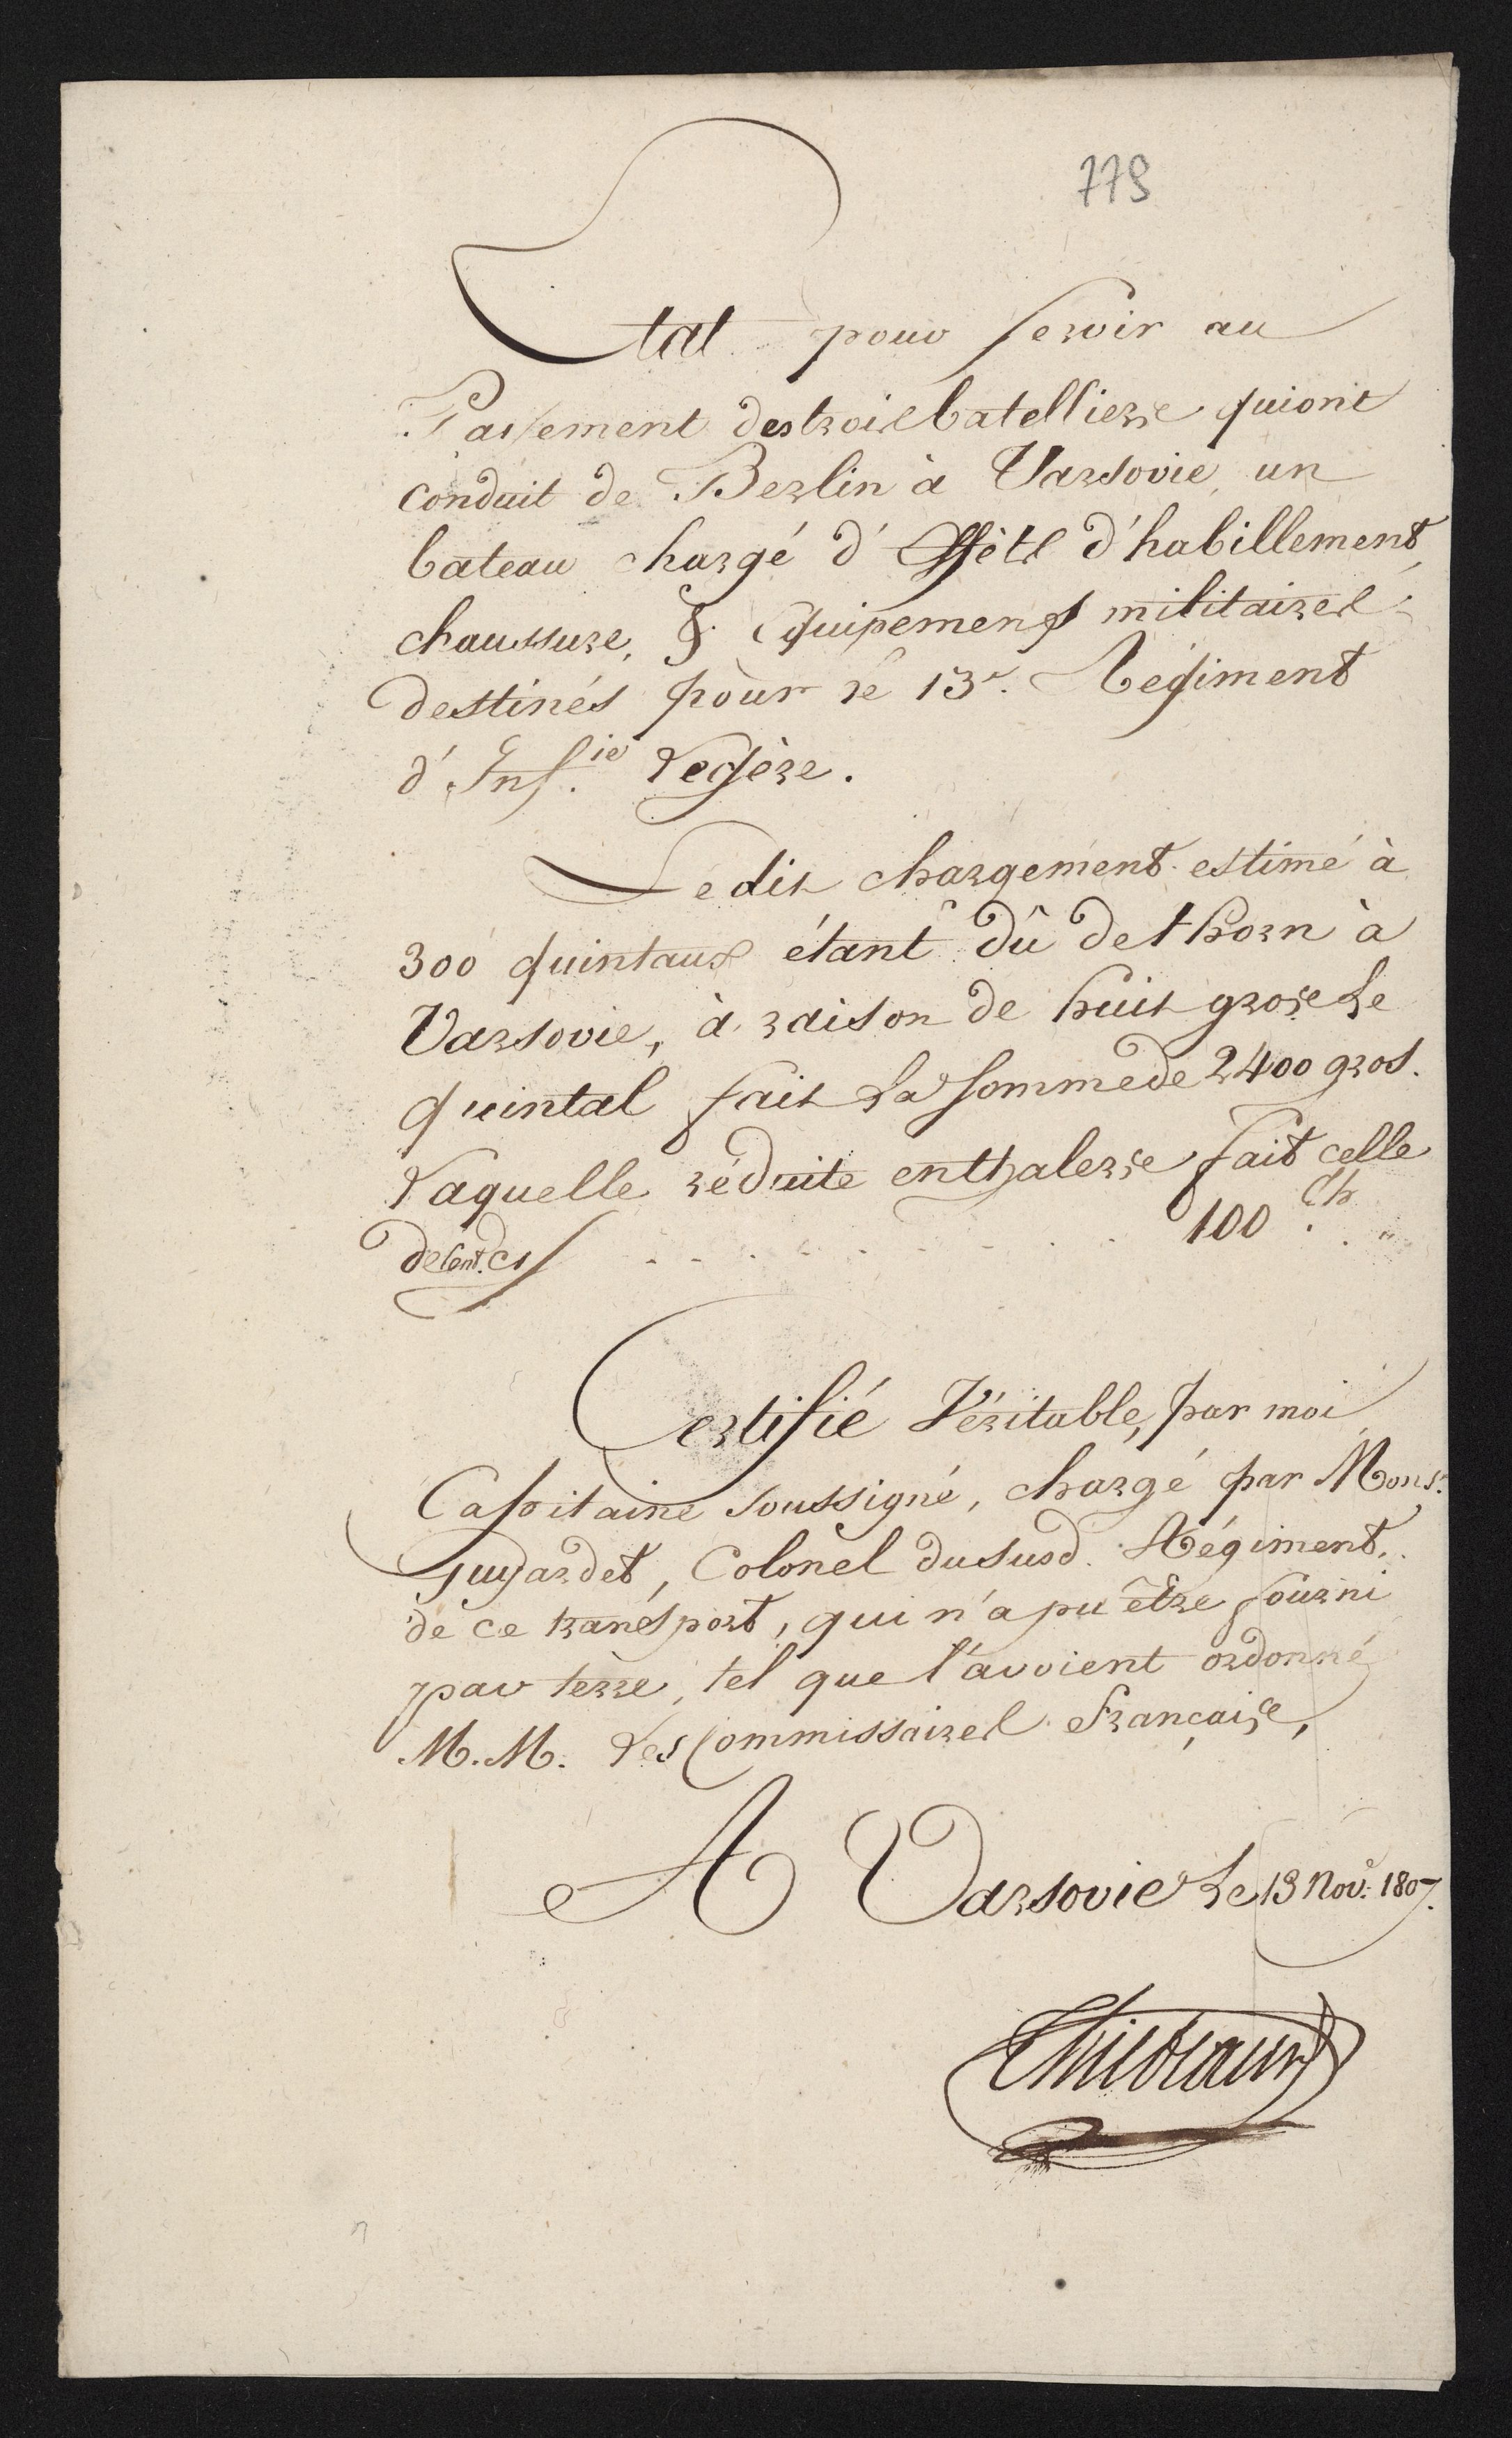 779
Etat pour servir au
Paiement des trois batelliers qui ont
conduit de Berlin à Varsovie, un
bateau chargé d'Effèts d'habillement,
chaussure, & Equipements militaires
destinés pour le 13e. Régiment
d'Inf.ie Legère.
Ledit chargement estimé à
300 quintaux étant dû de thorn à
Varsovie, à raison de huit gros le
quintal fait la somme de 2400 gros.
Laquelle réduite en thalers fait celle
de Cent. Ci . . . . . . . . . 100 Th. . "
Certifié Véritable, par moi
Capitaine soussigné, chargé par Monsr.
Guyardet, Colonel du susd. Régiment.
de ce transport, qui n'a pu être fourni
par terre, tel que l'avoient ordonné
M.M. les Commissaires Français,
A Varsovie le 13 Nov: 1807.